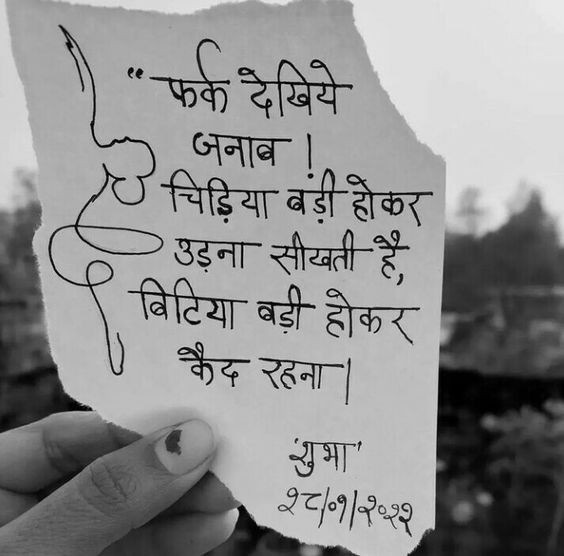 “ फर्क देखिये
जनाब !
चिड़िया बड़ी होकर
उड़ना सीखती है,
बिटिया बड़ी होकर
कैद रहना |
'शुभा'
२८/०१/२०२२